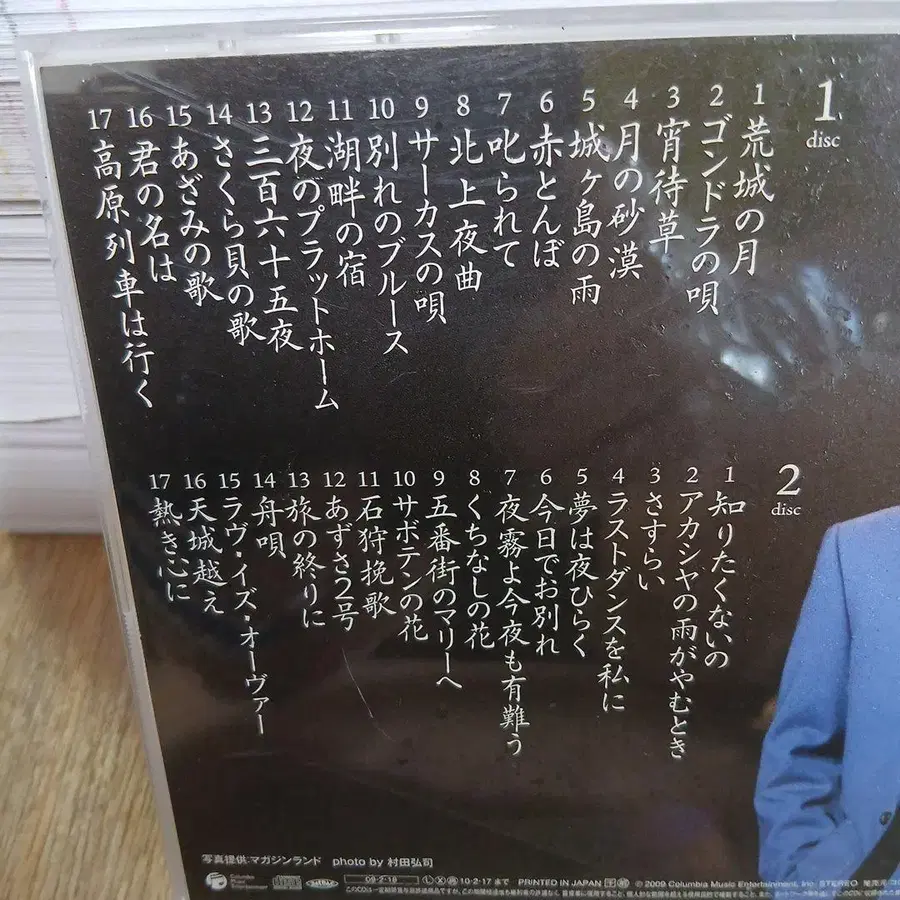 1
disc
1 荒城の月
2 ゴンドラの唄
3 宵待草
4 月の砂漠
5 城ヶ島の雨
6 赤とんぼ
7 叱られて
8 北上夜曲
9 サーカスの唄
10 別れのブルース
11 湖畔の宿
12 夜のプラットホーム
13 三百六十五夜
14 さくら貝の歌
15 あざみの歌
16 君の名は
17 高原列車は行く
2
disc
1 知りたくないの
2 アカシヤの雨がやむとき
3 さすらい
4 ラストダンスを私に
5 夢は夜ひらく
6 今日でお別れ
7 夜霧よ今夜も有難う
8 くちなしの花
9 五番街のマリーへ
10 サボテンの花
11 石狩挽歌
12 あずさ2号
13 旅の終りに
14 舟唄
15 ラヴ・イズ・オーヴァー
16 天城越え
17 熱き心に
写真提供:マガジンランド photo by 村田弘司
Columbia Music Entertainment
09-2-18 10-2-17まで PRINTED IN JAPAN ℗ © 2009 Columbia Music Entertainment, Inc. STEREO